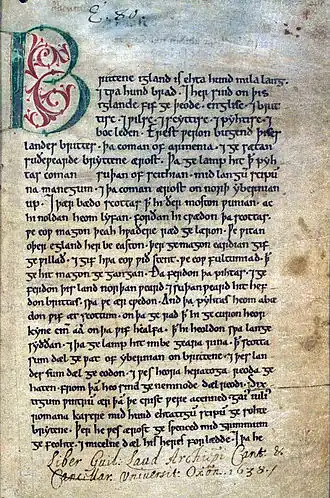 E. 80
Brittene igland is ehta hund mila lang.
⁊ ƿa hund brad. ⁊ her sind on þis
iglande fif ge þeode. englisc. ⁊ brit
tisc. ⁊ ƿilsc. ⁊ scyttisc. ⁊ pyhtisc. ⁊
boc leden. Erest ƿeron bugend þises
landes brittes. þa coman of armenia. ⁊ ge sætan
suðeƿearde bryttene ærost. Þa ge lamp hit ꝥ pyh
tas coman suþan of scithian. mid langū scipū
na manegum. ⁊ þa coman ærost on norþ ybernian
up. ⁊ þær bædo scottas ꝥ hi ðer moston ƿunian. ac
hi noldan heom lyfan. forðan hi cƿædon þa scottas.
ƿe eoƿ magon þeah hƿaðere ræd ge læron. Ƿe ƿitan
oþer egland her be easton. þer ge magon eardian gif
ge ƿillað. ⁊ gif hƿa eoƿ ƿið stent. ƿe eoƿ fultumiað. ꝥ
ge hit magon ge gangan. Ða ferdon þa pihtas. ⁊ ge
ferdon þis land norþan ƿeard. ⁊ suþan ƿeard hit hef
don brittas. sƿa ƿe ær cƿedon. And þa pyhtas heom abæ
don ƿif æt scottum. on þa ge rad ꝥ hi ge curon heor
kyne cinn aa on þa ƿif healfa. ꝥ hi heoldon sƿa lange
syððan. ⁊ þa ge lamp hit imbe geara rina. ꝥ scotta
sum dæl ge ƿat of ybernian on brittene. ⁊ þes lan
des sum dæl ge eodon. ⁊ ƿes heora heratoga reoda ge
haten. From þā heo sind ge nemnode dæl reodi. Sixe
tigum ƿintrū ær þā þe crist ƿere acenned. gaius iulius
romana kasere mid hund ehtatigū scipū ge sohte
brytene. Þer he ƿes ærost ge sƿenced mid grimmum
ge feohte. ⁊ micelne dæl his heres for lædde. ⁊ þa he
Liber Guil. Laud Archiepi Cant. &
Cancellar. Universit. Oxōn. 1638.